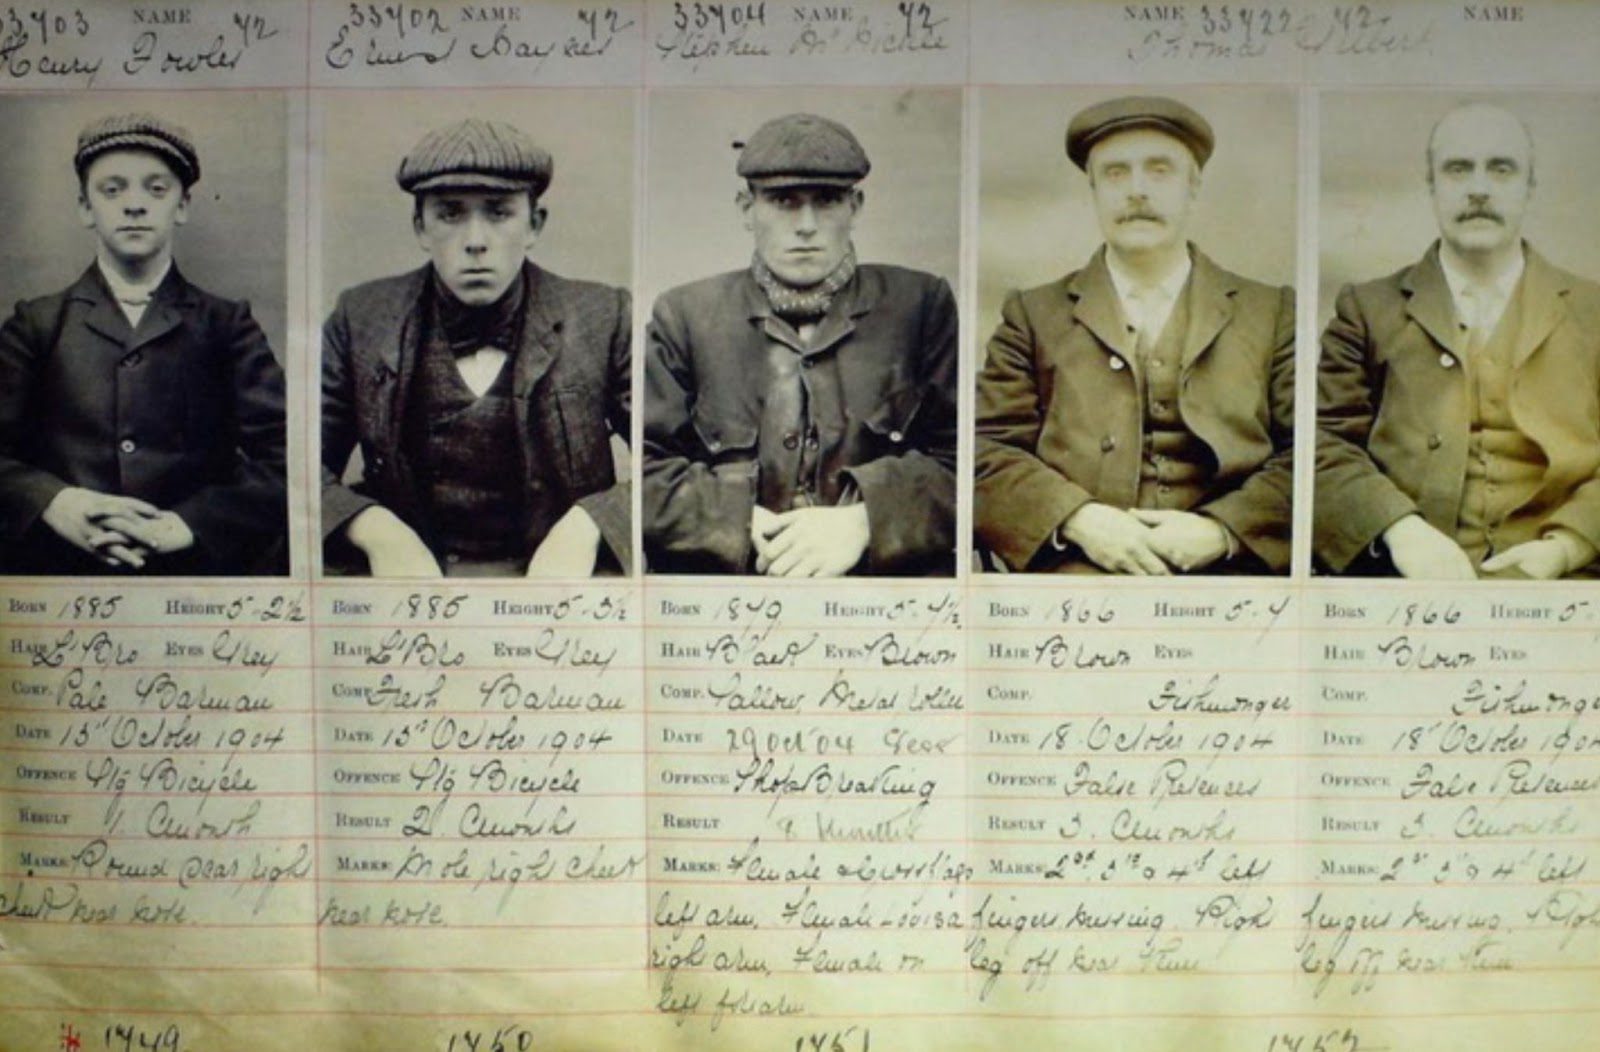 33703 NAME 72
Henry Fowler
33702 NAME 72
Ernest Haynes
33704 NAME 72
Stephen McNickle
NAME 33722 72
Thomas Gilbert
NAME
BORN 1885 HEIGHT 5-2½
HAIR Lt Bro EYES Grey
COMP. Pale Barman
DATE 13th October 1904
OFFENCE Stg Bicycle
RESULT 1. C month
MARKS: Round scar right
cheek near nose.
1749
BORN 1885 HEIGHT 5-3½
HAIR Lt Bro EYES Grey
COMP. Fresh Barman
DATE 13th October 1904
OFFENCE Stg Bicycle
RESULT 2. C months
MARKS: Mole right cheek
near nose
1750
BORN 1879 HEIGHT 5-4½
HAIR Black EYES Brown
COMP. Sallow, Metal roller
DATE 29 Oct 04
OFFENCE Shop Breaking
RESULT 8 months
MARKS: Female & cross flags
left arm. Female Louisa
right arm, Female on
left forearm
1751
BORN 1866 HEIGHT 5-4
HAIR Brown EYES
COMP. Fishmonger
DATE 18. October 1904
OFFENCE False Pretences
RESULT 3. C months
MARKS: 2nd 3rd & 4th left
fingers missing. Right
leg off near knee
1752
BORN 1866 HEIGHT 5-
HAIR Brown EYES
COMP. Fishmonge
DATE 18th October 1904
OFFENCE False Pretences
RESULT 3. C months
MARKS: 2nd 3rd & 4th left
fingers missing. Righ
leg off near knee